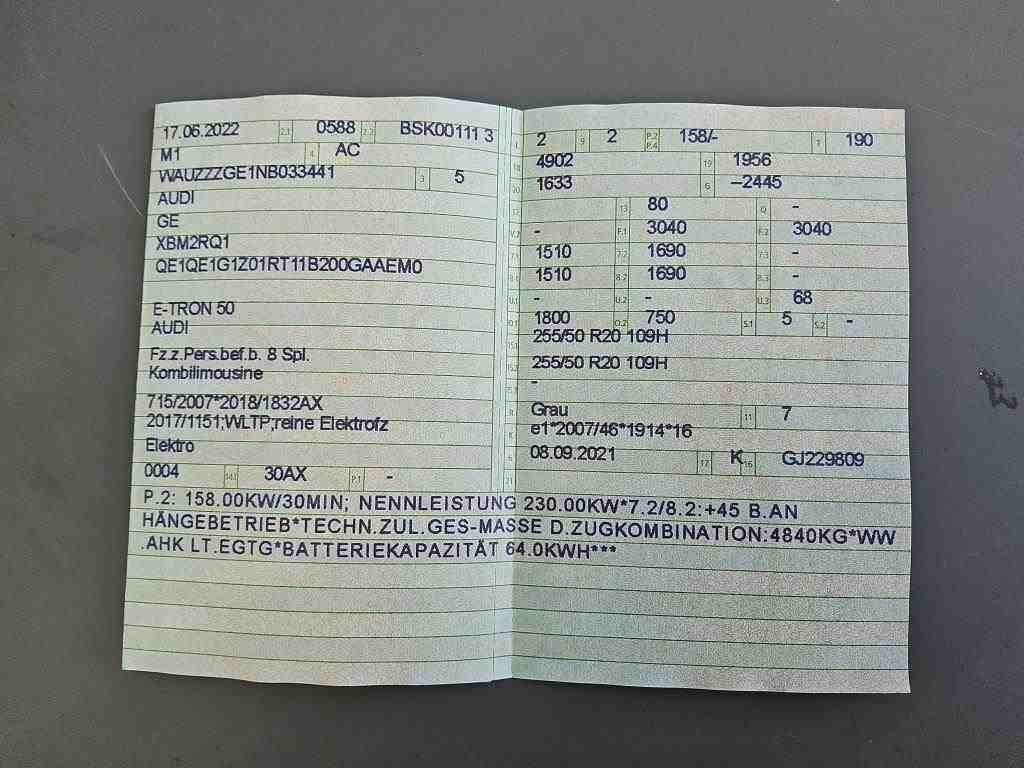 17.06.2022 2.1 0588 2.2 BSK00111 3
M1 4 AC
WAUZZZGE1NB033441 3 5
AUDI
GE
XBM2RQ1
QE1QE1G1Z01RT11B200GAAEM0
E-TRON 50
AUDI
Fz.z.Pers.bef.b. 8 Spl.
Kombilimousine
715/2007*2018/1832AX
2017/1151;WLTP;reine Elektrofz
Elektro
0004 14.1 30AX P.1 -
L 2 9 2 P.2 P.4 158/- T 190
18 4902 19 1956
20 1633 G –2445
12 13 80 Q -
V.7 - F.1 3040 F.2 3040
7.1 1510 7.2 1690 7.3 -
8.1 1510 8.2 1690 8.3 -
U.1 - U.2 - U.3 68
O.1 1800 O.2 750 S.1 5 S.2 -
15.1 255/50 R20 109H
15.2 255/50 R20 109H
15.3 -
R Grau 11 7
K e1*2007/46*1914*16
6 08.09.2021 17 K 16 GJ229809
21
P.2: 158.00KW/30MIN; NENNLEISTUNG 230.00KW*7.2/8.2:+45 B.AN
HÄNGEBETRIEB*TECHN.ZUL.GES-MASSE D.ZUGKOMBINATION:4840KG*WW
.AHK LT.EGTG*BATTERIEKAPAZITÄT 64.0KWH***